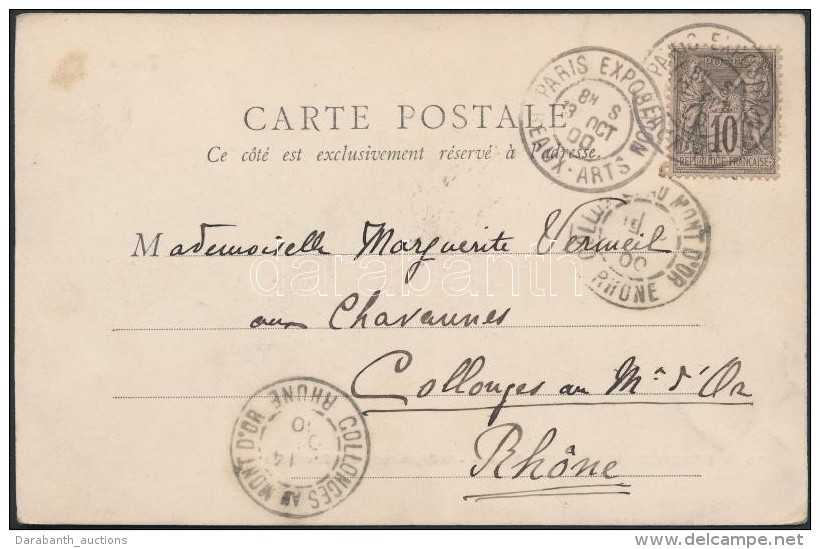 CARTE POSTALE
Ce côté est exclusivement réservé à l'adresse.
PARIS EXPOSITION
BEAUX-ARTS
8H S
OCT
00
POSTES
10
REPUBLIQUE FRANÇAISE
AU MONT D'OR
RHONE
00
Mademoiselle Marguerite Vermeil
aux Chavannes
Collonges au Mt d'Or
Rhône
COLLONGES AU MONT D'OR
RHONE
14
00
darabanth
Darabanth_auctions
delcampe.net